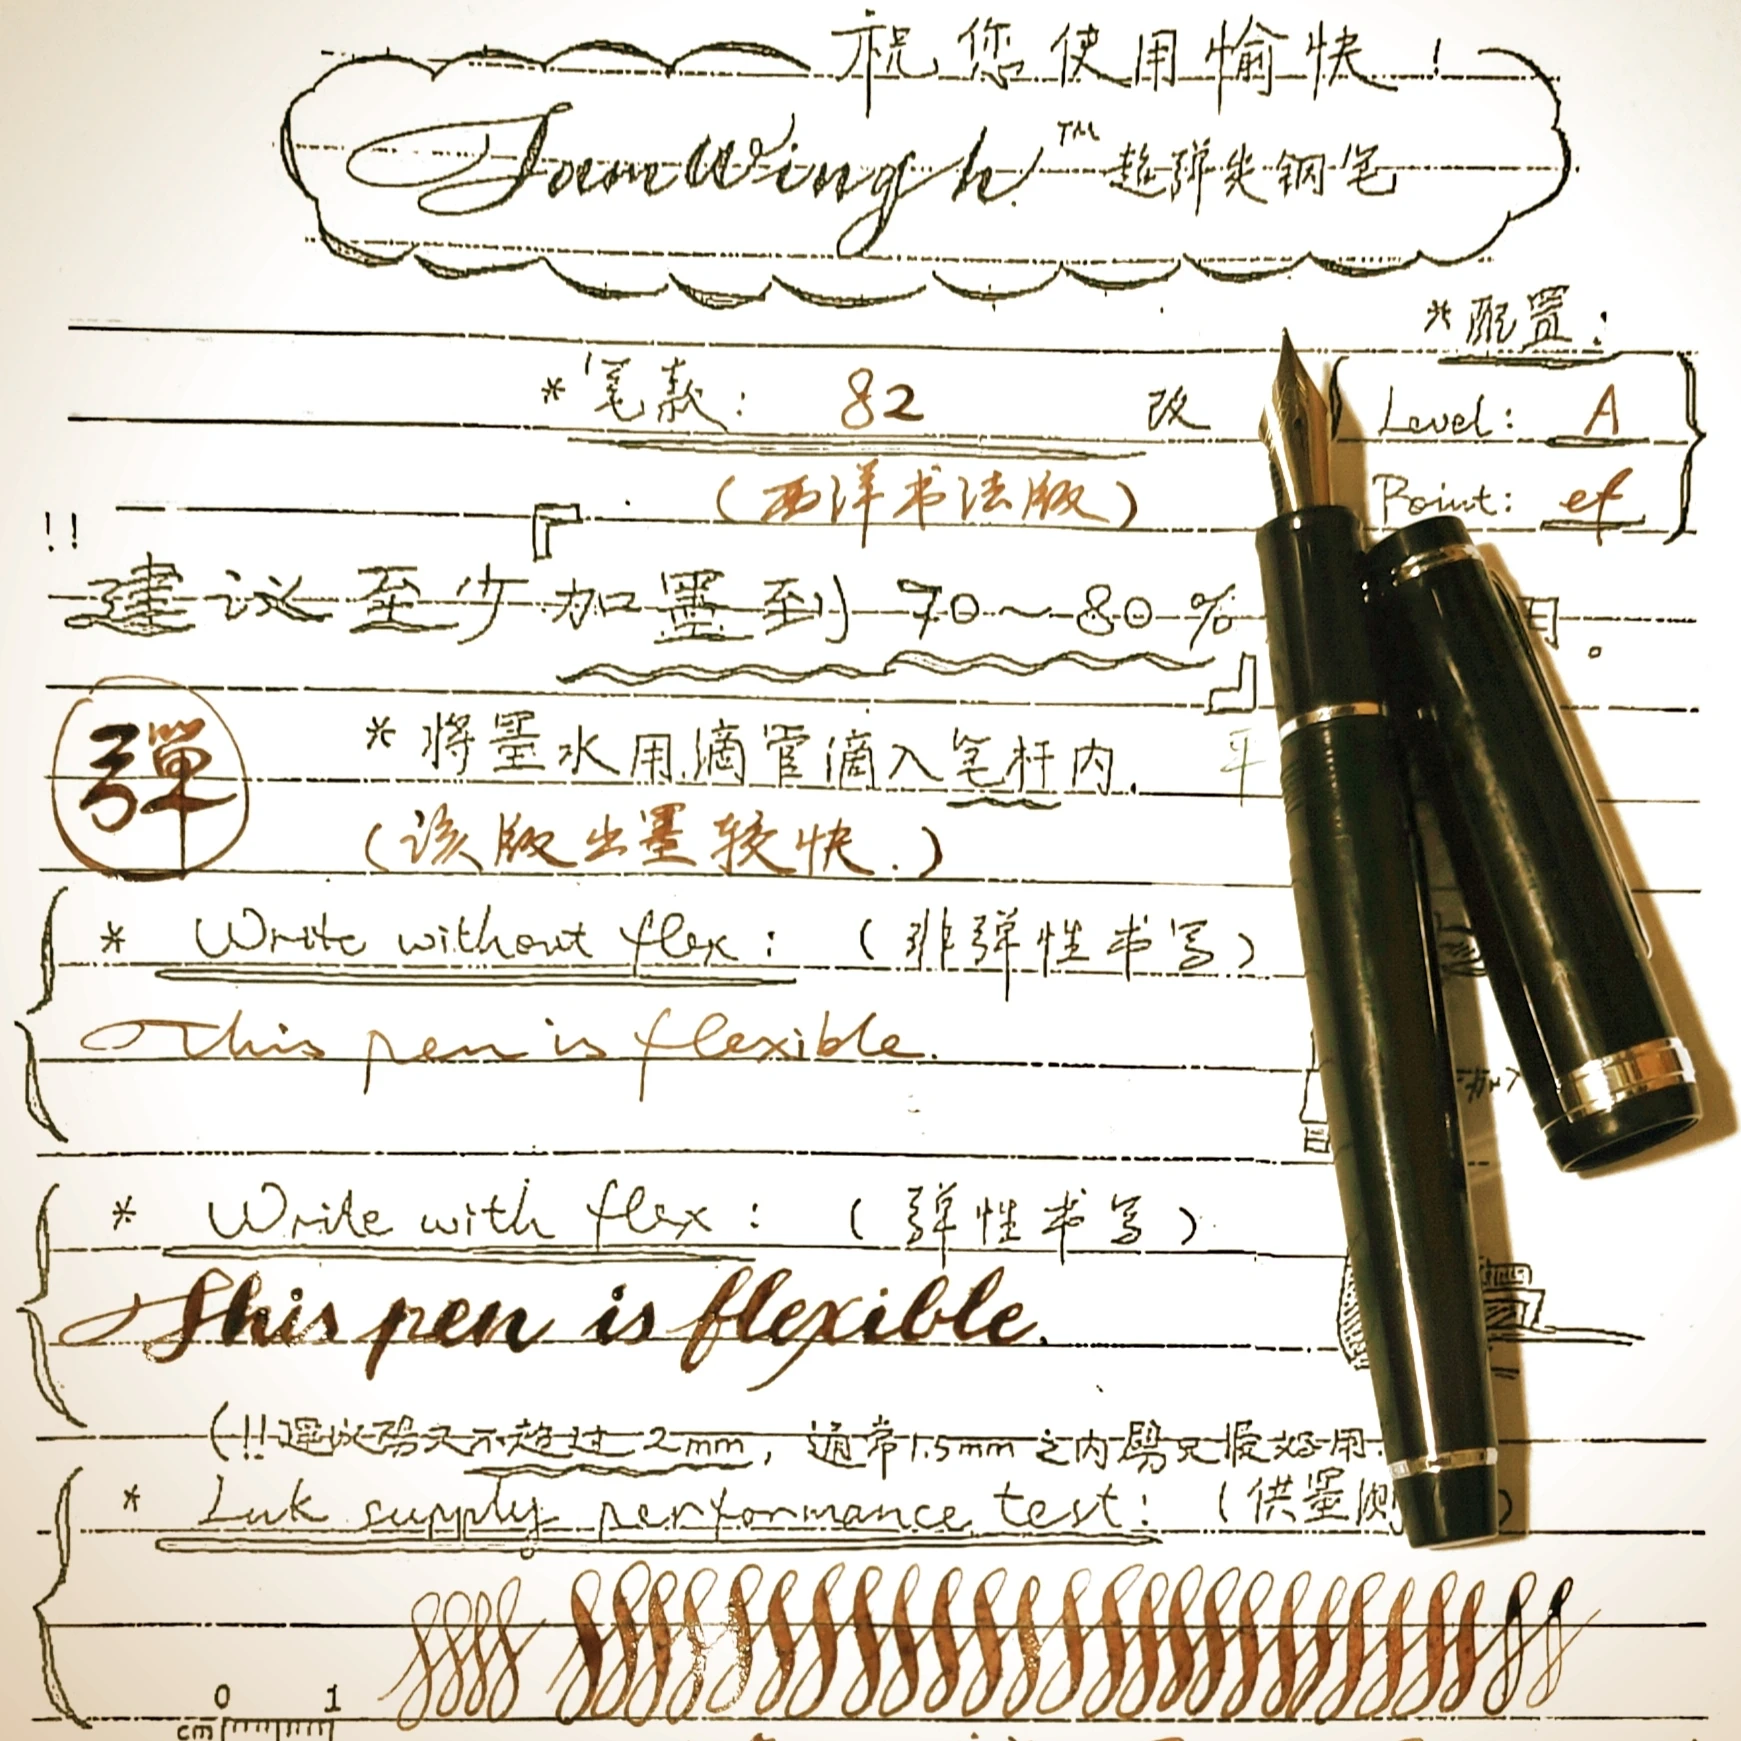 祝您使用愉快!
JamWingh™ 超弹尖钢笔
*配置:
*笔款: 82 改
Level: A
(西洋书法版)
Point: ef
!!
建议至少「加墨到70~80%」用。
彈
*将墨水用滴管滴入笔杆内. 平
(该版出墨较快.)
* Write without flex: (非弹性书写)
This pen is flexible.
* Write with flex: (弹性书写)
This pen is flexible.
(!!建议 不超过2mm, 通常1.5mm之内 最好用.
* Ink supply performance test: (供墨测
0 1
cm